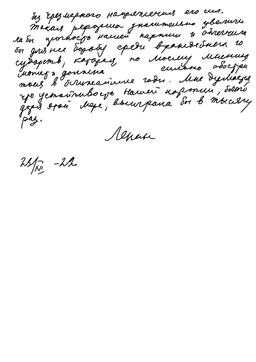 без чрезмерного напряжения его сил.
Такая реформа значительно увеличи
ла бы прочность нашей партии и облегчила
бы для нее борьбу среди враждебных го
сударств, которая, по моему мнению
может и должна сильно обостри
ться в ближайшие годы. Мне думается
что устойчивость нашей партии, благо
даря этой мере, выиграла бы в тысячу
раз.
Ленин
23/XII -22.